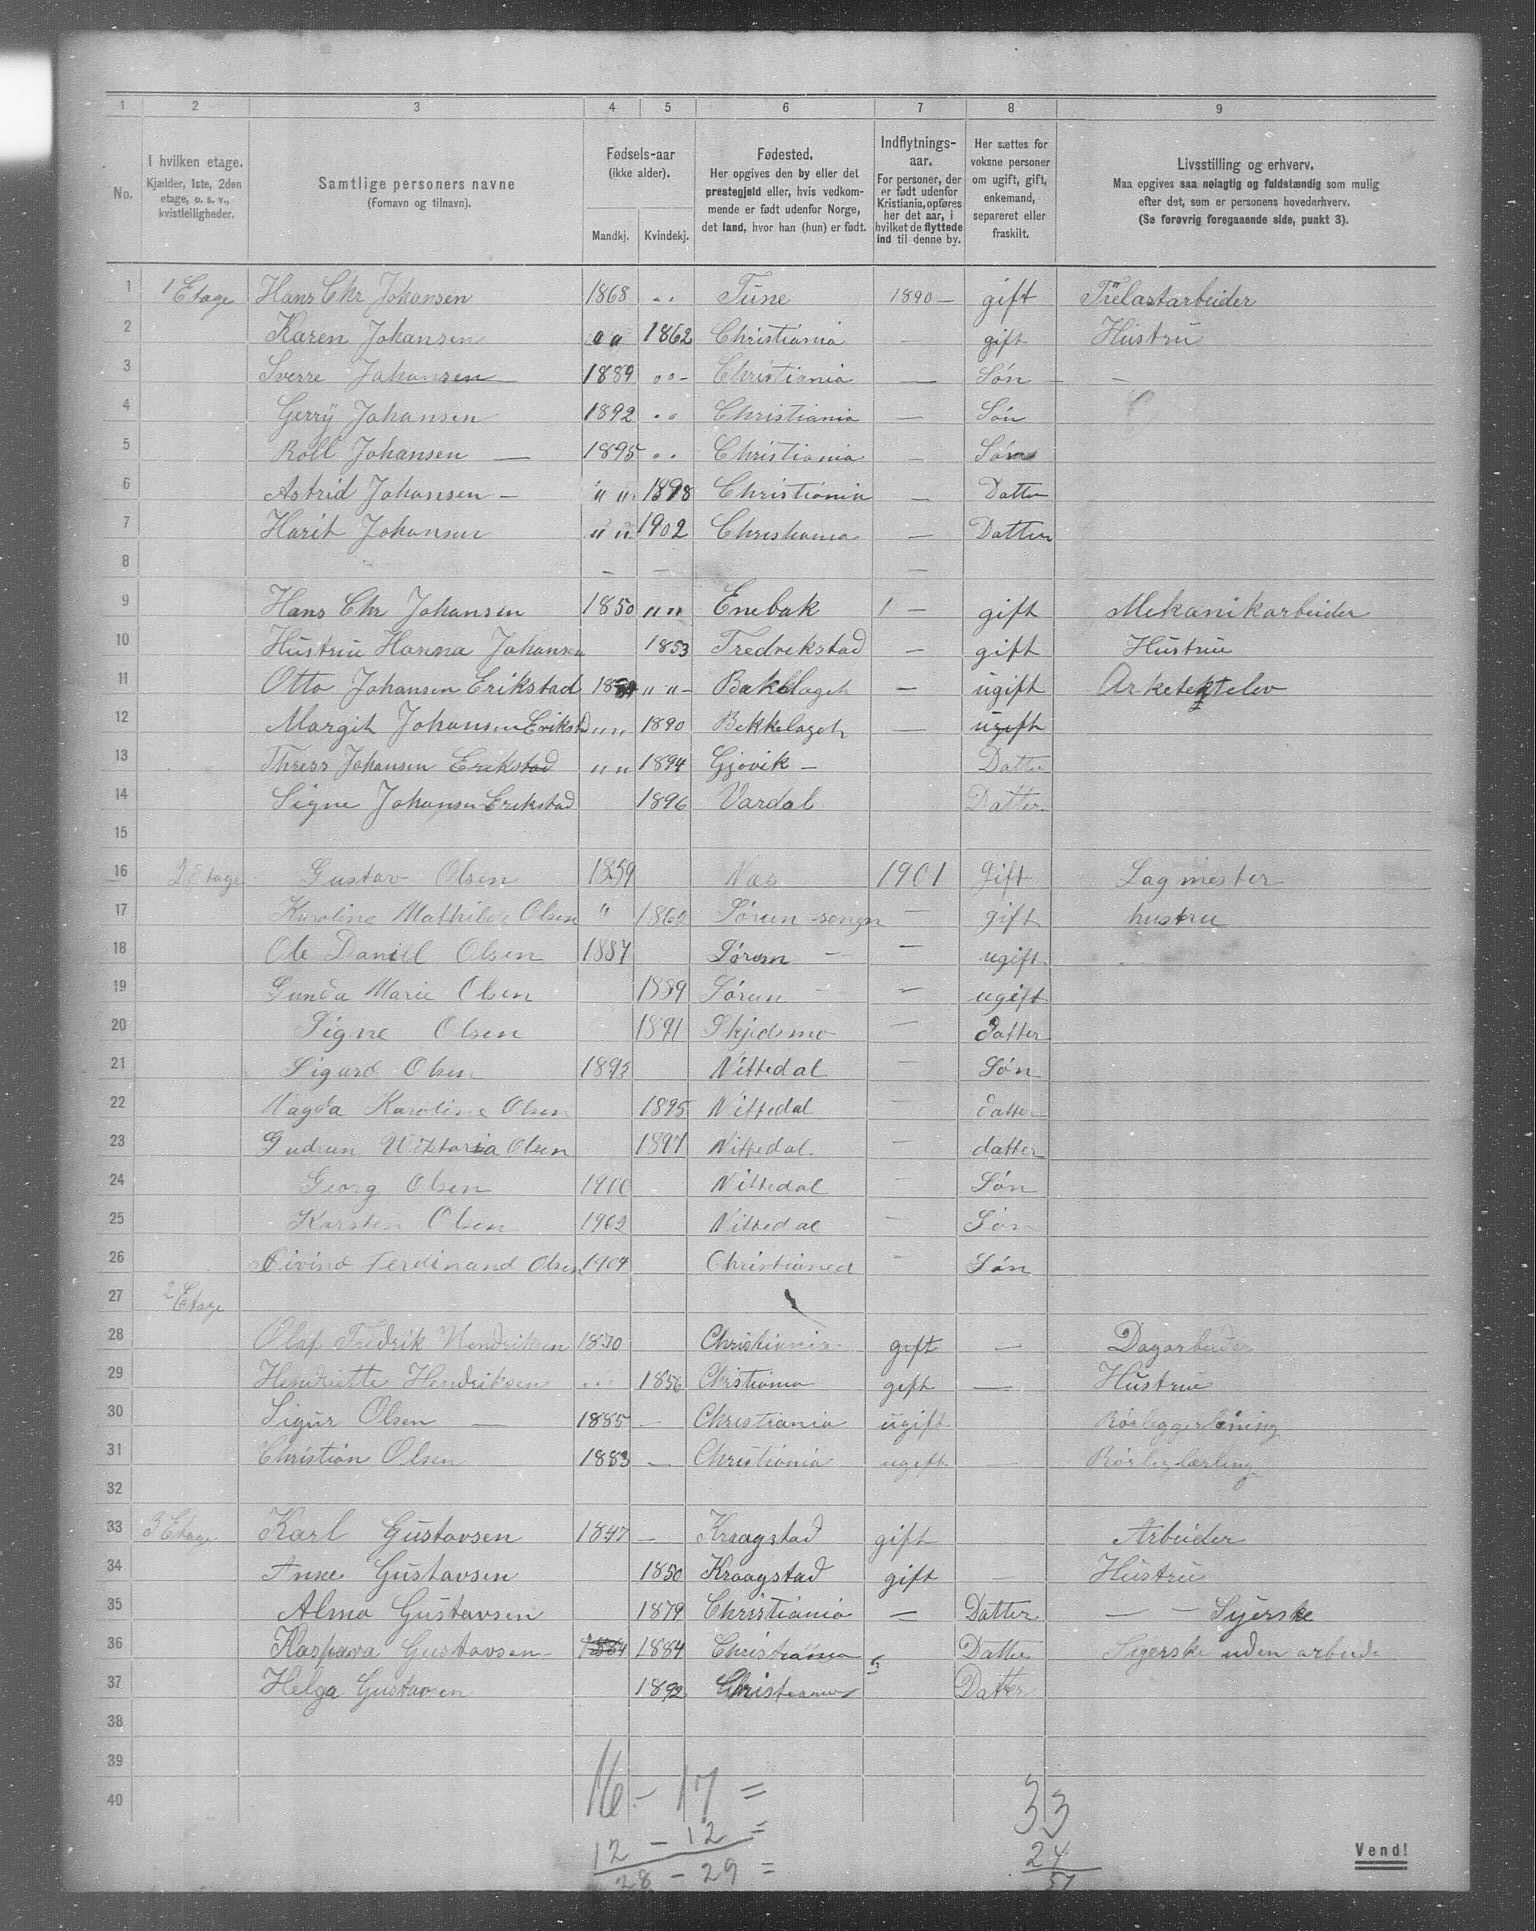 1 2 3 4 5 6 7 8 9
No.
I hvilken etage.
Kjælder, 1ste, 2den
etage, o. s. v.,
kvistleiligheder.
Samtlige personers navne
(Fornavn og tilnavn).
Fødsels-aar
(ikke alder).
Mandkj. Kvindekj.
Fødested.
Her opgives den by eller det
prestegjeld eller, hvis vedkom-
mende er født udenfor Norge,
det land, hvor han (hun) er født.
Indflytnings-
aar.
For personer, der
er født udenfor
Kristiania, opføres
her det aar, i
hvilket de flyttede
ind til denne by.
Her sættes for
voksne personer
om ugift, gift,
enkemand,
separeret eller
fraskilt.
Livsstilling og erhverv.
Maa opgives saa nøiagtig og fuldstændig som mulig
efter det, som er personens hovederhverv.
(Se forøvrig foregaaende side, punkt 3).
1 1 Etage Hans Chr Johansen 1868 " Tune 1890 — gift Trelastarbeider
2 Karen Johansen " " 1862 Christiania — gift Hustru
3 Sverre Johansen — 1889 " - Christiania — Søn — —
4 Gerry Johansen 1892 " Christiania — Søn
5 Rolf Johansen — 1895 " Christiania — Søn
6 Astrid Johansen — " " 1898 Christiania — Datter
7 Harit Johansen " " 1902 Christiania — Datter
8 — — —
9 Hans Chr Johansen 1850 " " Enebak 1 — gift Mekanikarbeider
10 Hustru Hanna Johansen 1853 Fredrekstad — gift Hustru
11 Otto Johansen Erikstad " " - Bækkelaget — ugift Arketektelev
12 Margit Johansen Erikstd " " 1890 Bekkelaget — ugift
13 Johansen Erekstad " " 1894 Gjøvik — Datter
14 Signe Johansen Erekstad 1896 Vardal Datter
15
16 2 Etage Gustav Olsen 1859 Næs 1901 Gift Sagmester
17 Karoline Mathilde Olsen " 1862 Sørum — gift hustru
18 Ole Daniel Olsen 1887 Sørum — — ugift
19 Gunda Marie Olsen 1889 Sørum — — ugift
20 Signe Olsen 1891 Skjedsmo — datter
21 Sigurd Olsen 1893 Nittedal — Søn
22 Magda Karoline Olsen 1895 Nittedal — datter
23 Gudrun Wiktoria Olsen 1897 Nittedal — datter
24 Georg Olsen Nittedal — Søn
25 Karsten Olsen 1902 Nittedal — Søn
26 Øivind Ferdinand Olsen 1904 Christianed — Søn
27 2 Etage
28 Olaf Fredrik Hendriksen 1870 Christiania gift — Dagarbeider
29 Henriette Hendriksen " 1856 Christiania gift — Hustru
30 Sigur Olsen — 1885 — Christiania ugift
31 Christian Olsen 1883 — Christiania ugift —
32
33 3 Etage Karl Gustavsen 1847 — Kraagstad gift Arbeider
34 Anne Gustavsen 1850 Kraagstad gift — Hustru
35 Alma Gustavsen 1879 Christiania — Datter — — Syerske
36 Kaspara Gustavsen — 1884 1884 Christiania Datter Syerske uden arbeide
37 Helga Gustavsen 1892 Christiania Datter
38
39
40
16 - 17 = 33
12 - 12 = 24
28 - 29 = 57
Vend!